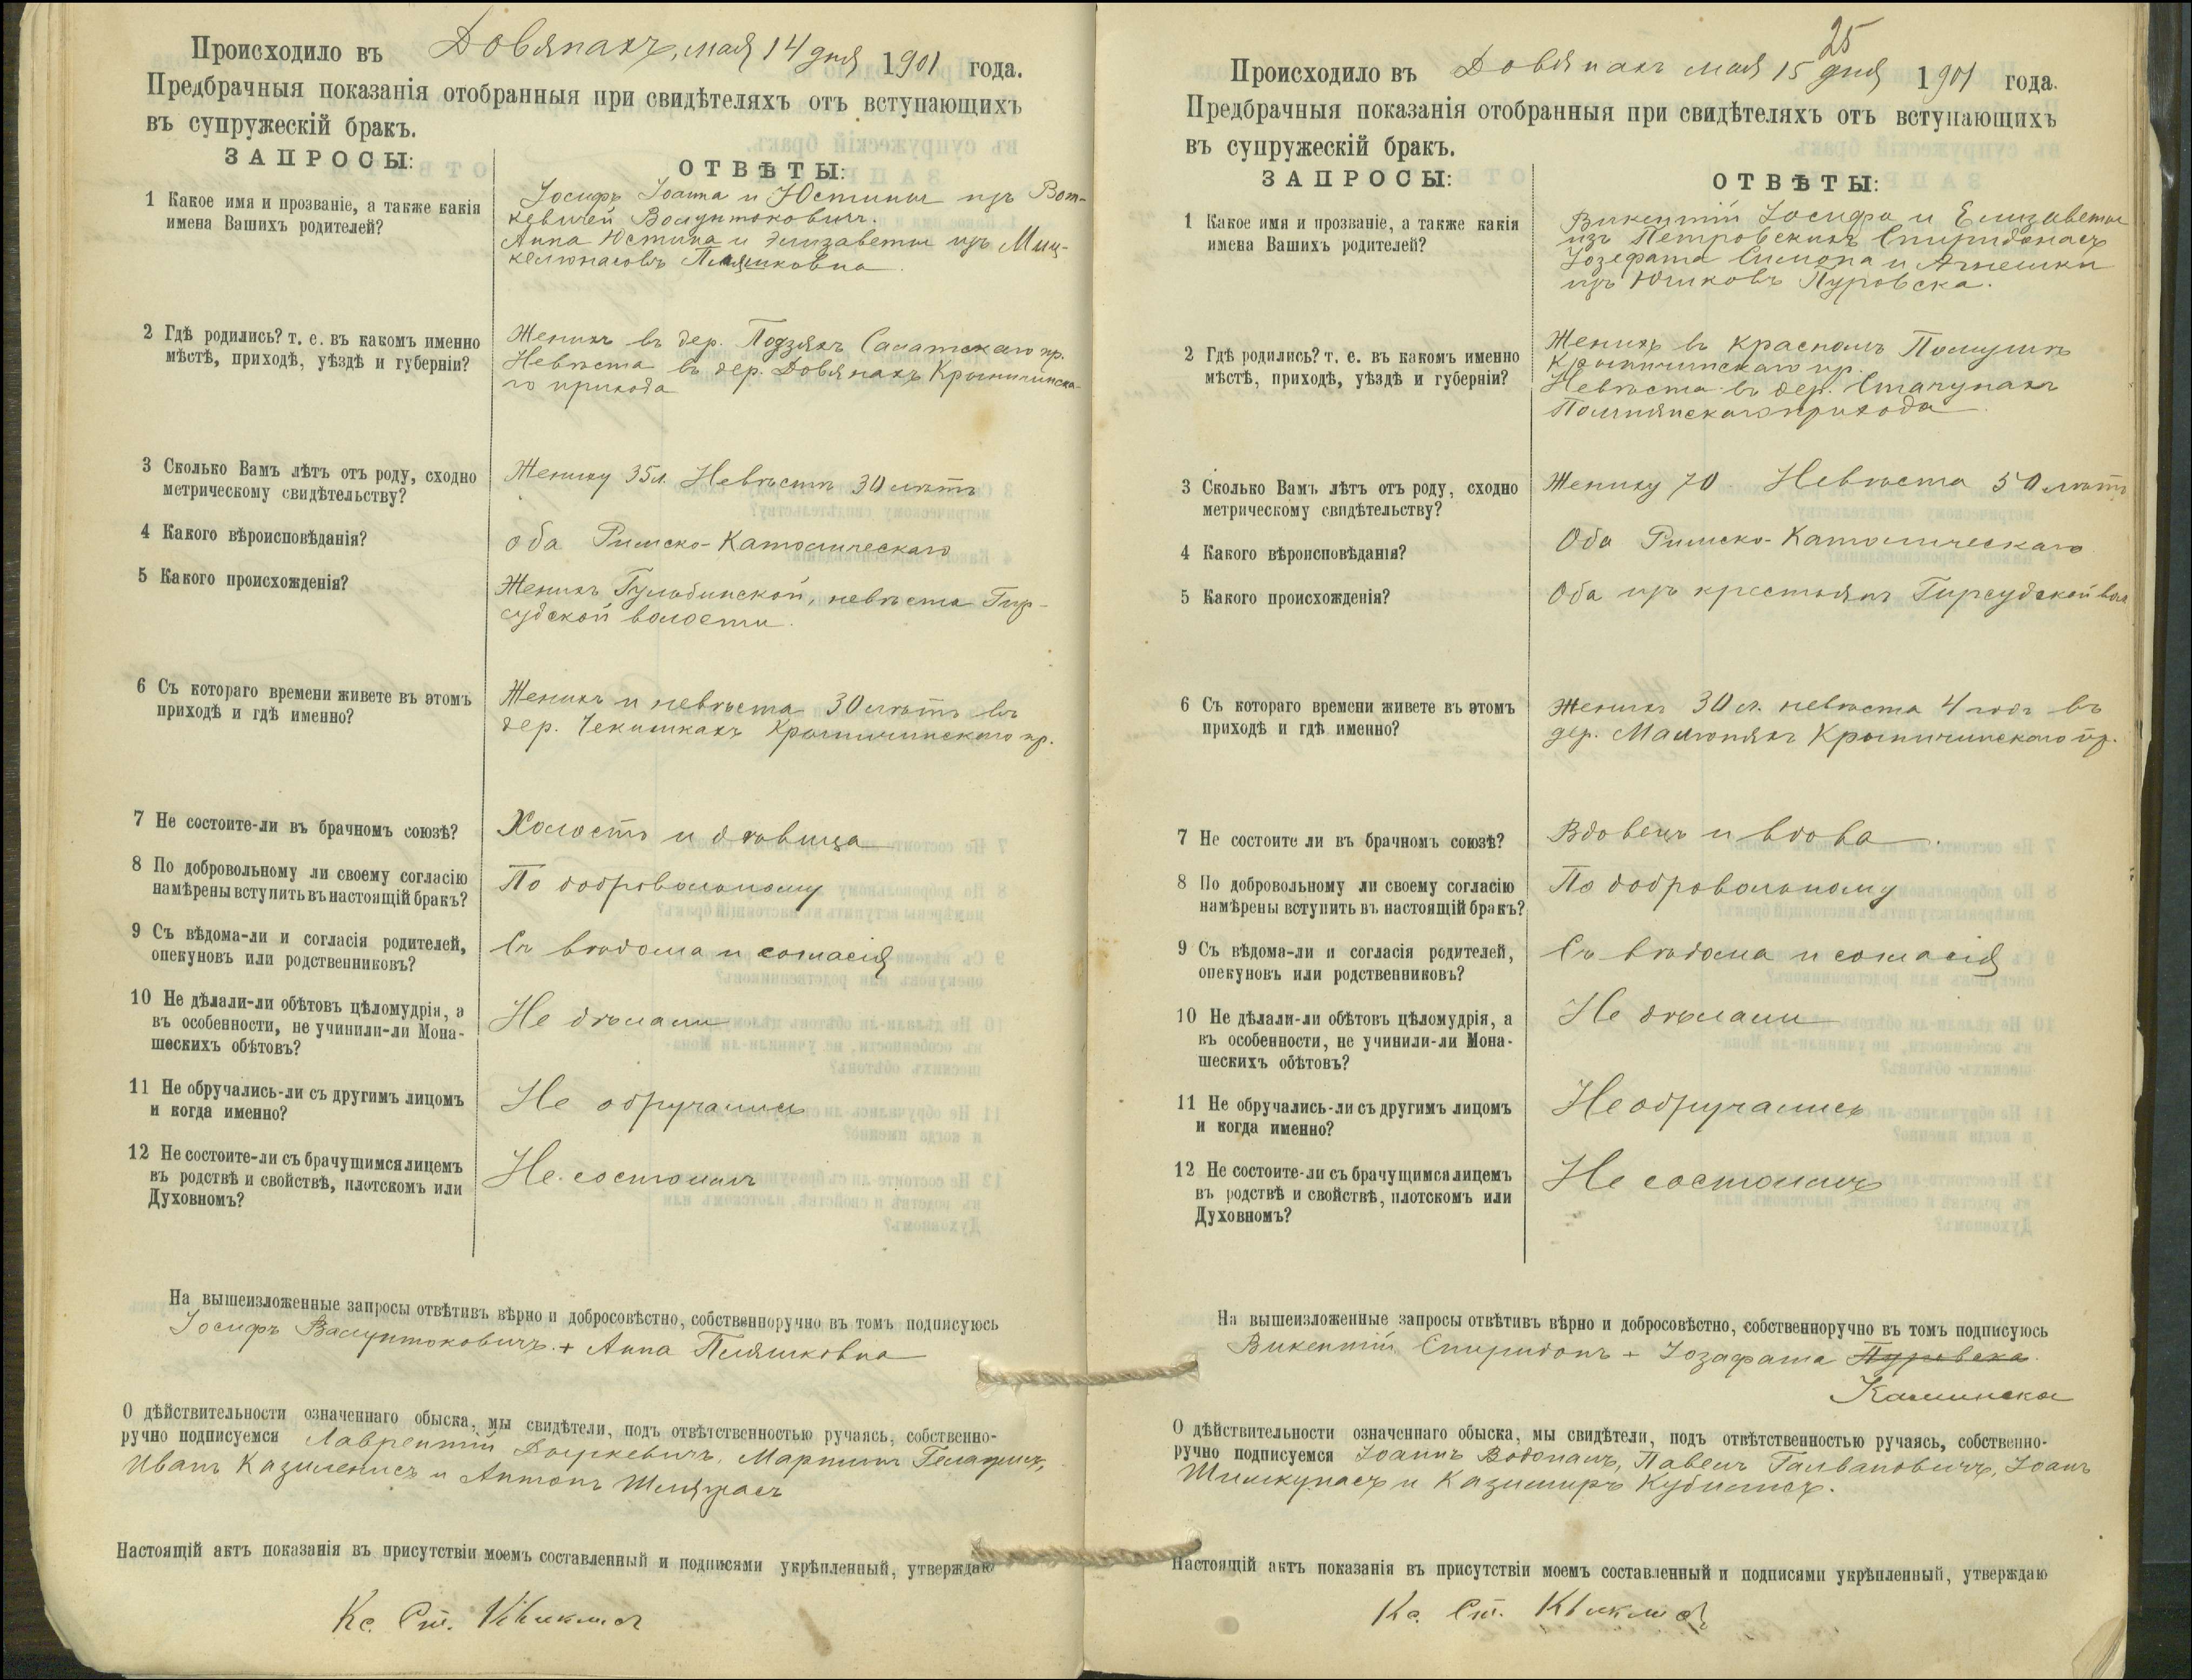 Происходило въ Довянахъ, мая 14 дня 1901 года.
Предбрачныя показанія отобранныя при свидѣтеляхъ отъ вступающихъ
въ супружескій бракъ.
ЗАПРОСЫ:
ОТВѢТЫ:
1 Какое имя и прозваніе, а также какія
имена Вашихъ родителей?
Іосифъ Іоанна и Юстины изъ Вот-
кевичей
Анна Юстина и Элизаветы изъ Миц-
Пляшковна.
2 Гдѣ родились? т. е. въ какомъ именно
мѣстѣ, приходѣ, уѣздѣ и губерніи?
Женихъ въ дер. Подзяхъ Салатскаго пр.
Невѣста въ дер. Довянахъ Крыничинска-
го прихода
3 Сколько Вамъ лѣтъ отъ роду, сходно
метрическому свидѣтельству?
Жениху 35 л. Невѣстѣ 30 лѣтъ
4 Какого вѣроисповѣданія?
Оба Римско-Католическаго
5 Какого происхожденія?
Женихъ Гулобинской, невѣста Гир-
судской волости.
6 Съ котораго времени живете въ этомъ
приходѣ и гдѣ именно?
Женихъ и невѣста 30 лѣтъ въ
дер. Чекишкахъ Крыничинскаго пр.
7 Не состоите-ли въ брачномъ союзѣ?
Холостъ и дѣвица
8 По добровольному ли своему согласію
намѣрены вступить въ настоящій бракъ?
По добровольному
9 Съ вѣдома-ли и согласія родителей,
опекуновъ или родственниковъ?
Съ вѣдома и согласія
10 Не дѣлали-ли обѣтовъ цѣломудрія, а
въ особенности, не учинили-ли Мона-
шескихъ обѣтовъ?
Не дѣлали
11 Не обручались-ли съ другимъ лицомъ
и когда именно?
Не обручались
12 Не состоите-ли съ брачущимся лицемъ
въ родствѣ и свойствѣ, плотскомъ или
Духовномъ?
Не состоимъ
На вышеизложенные запросы отвѣтивъ вѣрно и добросовѣстно, собственноручно въ томъ подписуюсь
Іосифъ Валунтоковичъ. + Анна Пляшковна
О дѣйствительности означеннаго обыска, мы свидѣтели, подъ отвѣтственностью ручаясь, собственно-
ручно подписуемся Лаврентій Доуркевичъ, Мартинъ
Иванъ Казиленисъ и Антонъ
Настоящій актъ показанія въ присутствіи моемъ составленный и подписями укрѣпленный, утверждаю
Кс. Ст. Квиклисъ
25
Происходило въ Довянахъ мая 15 дня 1901 года.
Предбрачныя показанія отобранныя при свидѣтеляхъ отъ вступающихъ
въ супружескій бракъ.
ЗАПРОСЫ:
ОТВѢТЫ:
1 Какое имя и прозваніе, а также какія
имена Вашихъ родителей?
Викентій Іосифа и Елизаветы
изъ Петровскихъ Спиридонасъ
Іозефата Симона и Агнешки
изъ Юшковъ Пуровска.
2 Гдѣ родились? т. е. въ какомъ именно
мѣстѣ, приходѣ, уѣздѣ и губерніи?
Женихъ въ Красномъ
Крыничинскаго пр.
Невѣста въ дер. Стачунахъ
прихода
3 Сколько Вамъ лѣтъ отъ роду, сходно
метрическому свидѣтельству?
Жениху 70 Невѣста 50 лѣтъ
4 Какого вѣроисповѣданія?
Оба Римско-Католическаго
5 Какого происхожденія?
Оба изъ крестьянъ Гирсудской вол
6 Съ котораго времени живете въ этомъ
приходѣ и гдѣ именно?
Женихъ 30 л. невѣста 4 года въ
дер. Малюпяхъ Крыничинскаго пр.
7 Не состоите ли въ брачномъ союзѣ?
Вдовецъ и вдова.
8 По добровольному ли своему согласію
намѣрены вступить въ настоящій бракъ?
По добровольному
9 Съ вѣдома-ли и согласія родителей,
опекуновъ или родственниковъ?
Съ вѣдома и согласія
10 Не дѣлали-ли обѣтовъ цѣломудрія, а
въ особенности, не учинили-ли Мона-
шескихъ обѣтовъ?
Не дѣлали
11 Не обручались-ли съ другимъ лицомъ
и когда именно?
Не обручались
12 Не состоите-ли съ брачущимся лицемъ
въ родствѣ и свойствѣ, плотскомъ или
Духовномъ?
Не состоимъ
На вышеизложенные запросы отвѣтивъ вѣрно и добросовѣстно, собственноручно въ томъ подписуюсь
Викентій Спиридонъ + Іозафата Пуровска.
Каминска
О дѣйствительности означеннаго обыска, мы свидѣтели, подъ отвѣтственностью ручаясь, собственно-
ручно подписуемся Іоаннъ Водопалъ, Павелъ Галвановичъ, Іоанъ
Шимкунасъ и Казимиръ Кубилюсъ.
Настоящій актъ показанія въ присутствіи моемъ составленный и подписями укрѣпленный, утверждаю
Кс. Ст. Квиклисъ